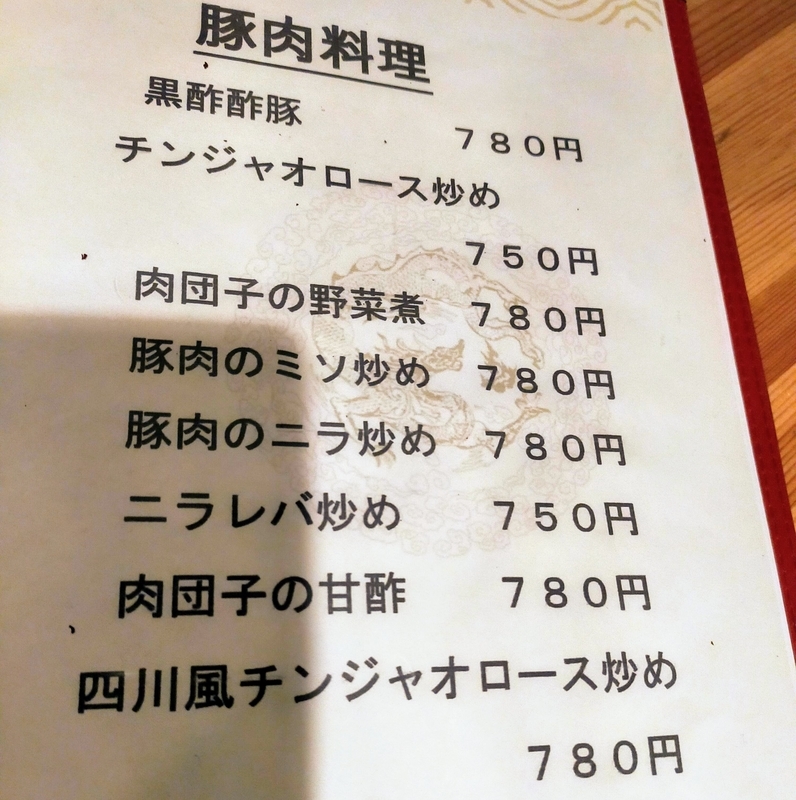 豚肉料理
黒酢酢豚 ７８０円
チンジャオロース炒め
７５０円
肉団子の野菜煮 ７８０円
豚肉のミソ炒め ７８０円
豚肉のニラ炒め ７８０円
ニラレバ炒め ７５０円
肉団子の甘酢 ７８０円
四川風チンジャオロース炒め
７８０円